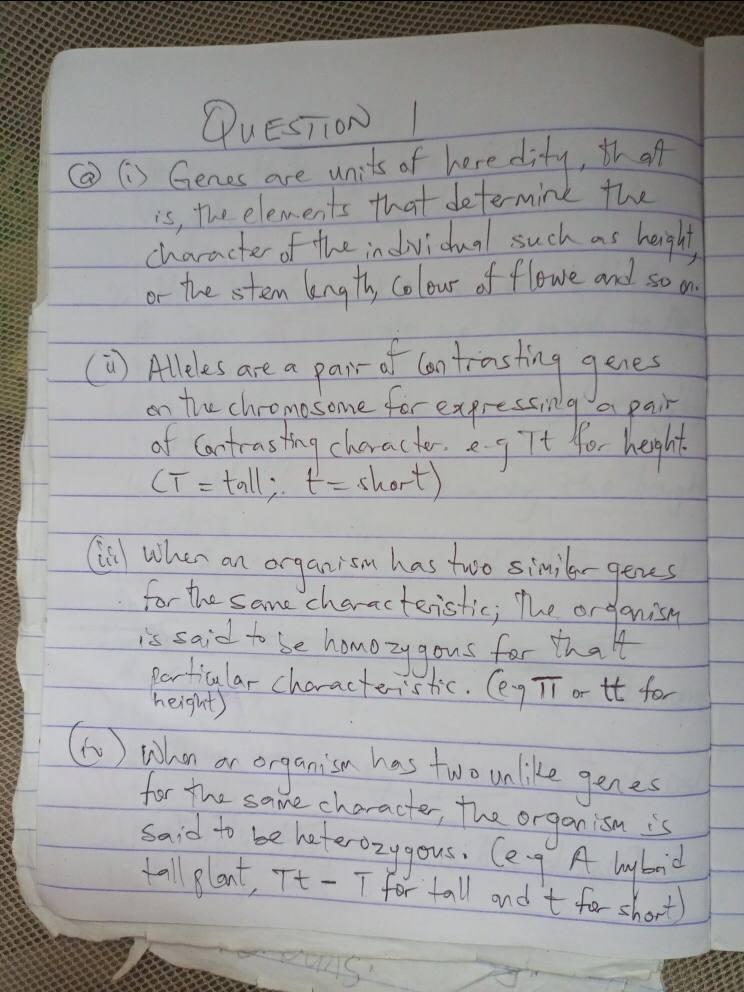 QUESTION 1
(a) (i) Genes are units of heredity, that
is, the elements that determine the
character of the individual such as height,
or the stem length, Colour of flowe and so on.
(ii) Alleles are a pair of Contrasting genes
on the chromosome for expressing a pair
of Contrasting character. e-g Tt for height.
(T = tall; t = short)
(iii) When an organism has two similar genes
for the same characteristic; The organism
is said to be homozygous for that
particular characteristic. (e.g TT or tt for
height)
(iv) When an organism has two unlike genes
for the same character, the organism is
said to be heterozygous. (e.g A hybrid
tall plant, Tt - T for tall and t for short)